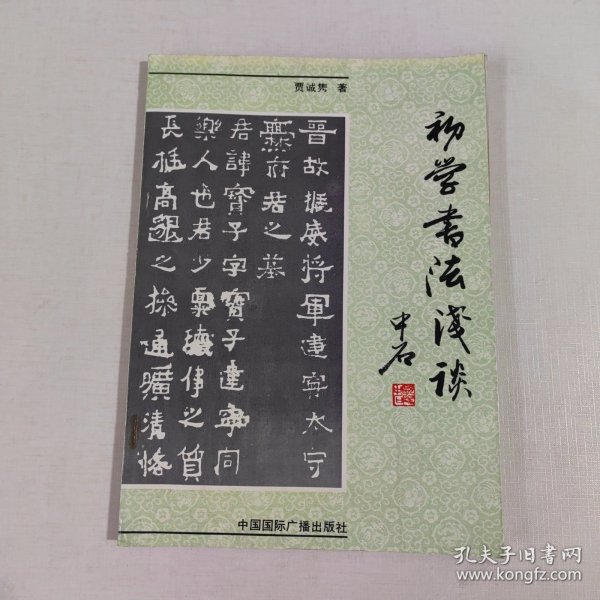 贾诚隽 著
初学书法浅談
中石
晋故振威将軍建寧太守
爨府君之墓
君諱寶子字寶子建寧同
樂人也君少禀瓌偉之質
長挺高邈之操通曠清恪
中国国际广播出版社
孔夫子旧书网
www.kongfz.com